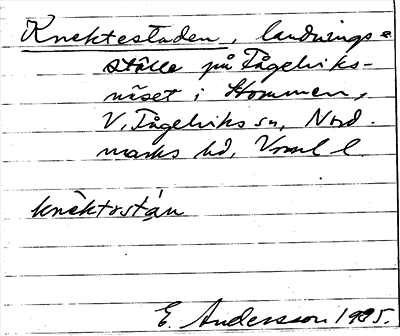 Knektestaden, landnings=
ställe på Fågelviks-
näset i Stommen,
V. Fågelviks sn, Nord-
marks hd, Vrml l.
knèktostán
E. Andersson 1985.